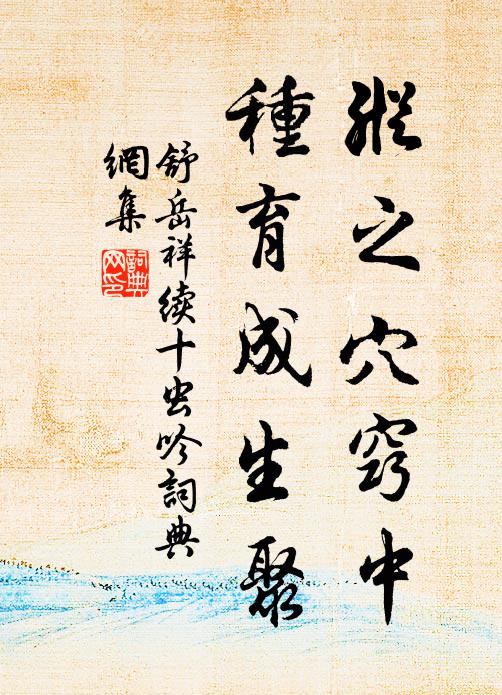 縱之穴竅中
種育成生聚
舒岳祥續十虫吟詞典
網集
詞典网印